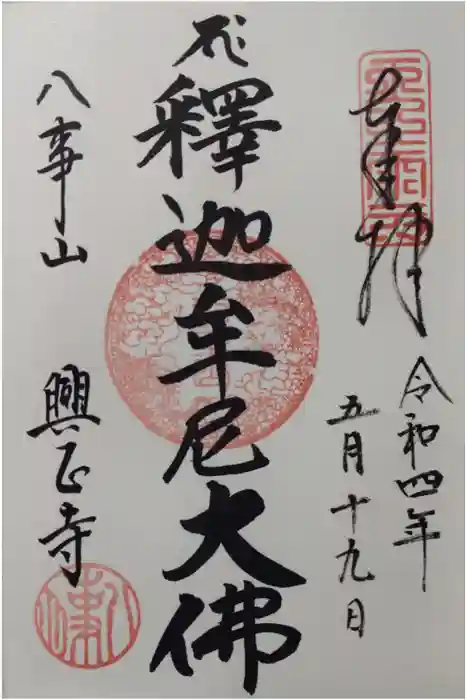 奉拝
令和四年
五月十九日
釋迦牟尼大佛
八事山
興正寺